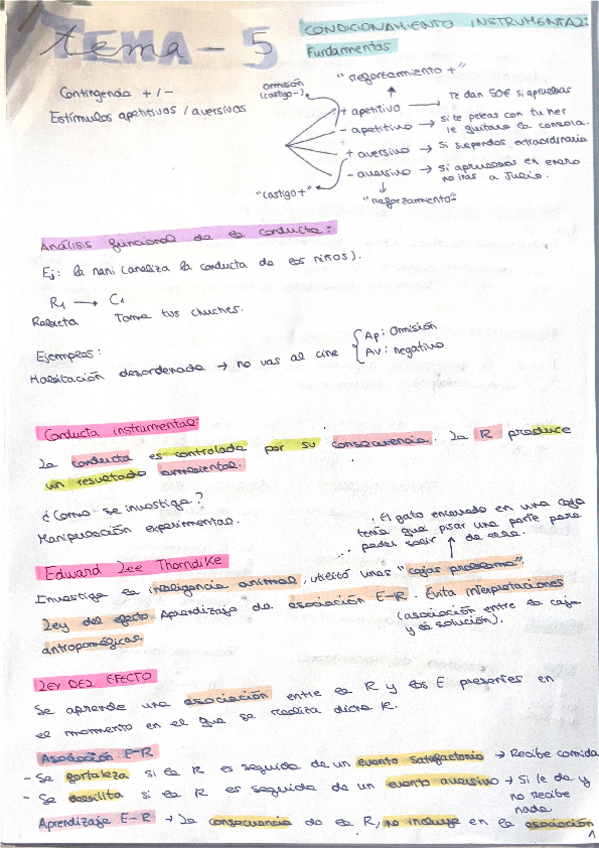 TEMA - 5
CONDICIONAMIENTO INSTRUMENTAL:
Fundamentos
Contingencia + / -
Estímulos apetitivos / aversivos
omisión
(castigo -)
"reforzamiento +"
+ apetitivo → Te dan 50€ si apruebas
- apetitivo → si te peleas con tu her
le quitare la consola.
+ aversivo → Si suspendes extraordinaria
- aversivo → Si apruebas en enero
no iras a Junio.
"castigo +"
"reforzamiento -"
Análisis funcional de la conducta:
Ej: la nani (analiza la conducta de los niños).
R1 → C1
Rabieta Toma tus chuches.
Ejemplos:
Habitación desordenada → no vas al cine
Ap: Omisión
Av: negativo
Conducta instrumental
La conducta es controlada por su consecuencia. La R produce
un resultado ambiental.
¿Cómo se investiga?
Manipulación experimental.
El gato encerrado en una caja
tenía que pisar una parte para
poder salir de ella.
Edward Lee Thorndike
Investiga la inteligencia animal, utilizó unas "cajas problema"
Ley del efecto. Aprendizaje de asociación E-R. Evita interpretaciones
antropomórficas.
(asociación entre la caja
y la solución).
LEY DEL EFECTO
Se aprende una asociación entre la R y los E presentes en
el momento en el que se realiza dicha R.
Asociación E-R
- Se fortaleza si la R es seguida de un evento satisfactorio → Recibe comida
- Se debilita si la R es seguida de un evento aversivo → Si le da y
no recibe
nada
Aprendizaje E-R → La consecuencia de la R, no incluye en la asociación
1